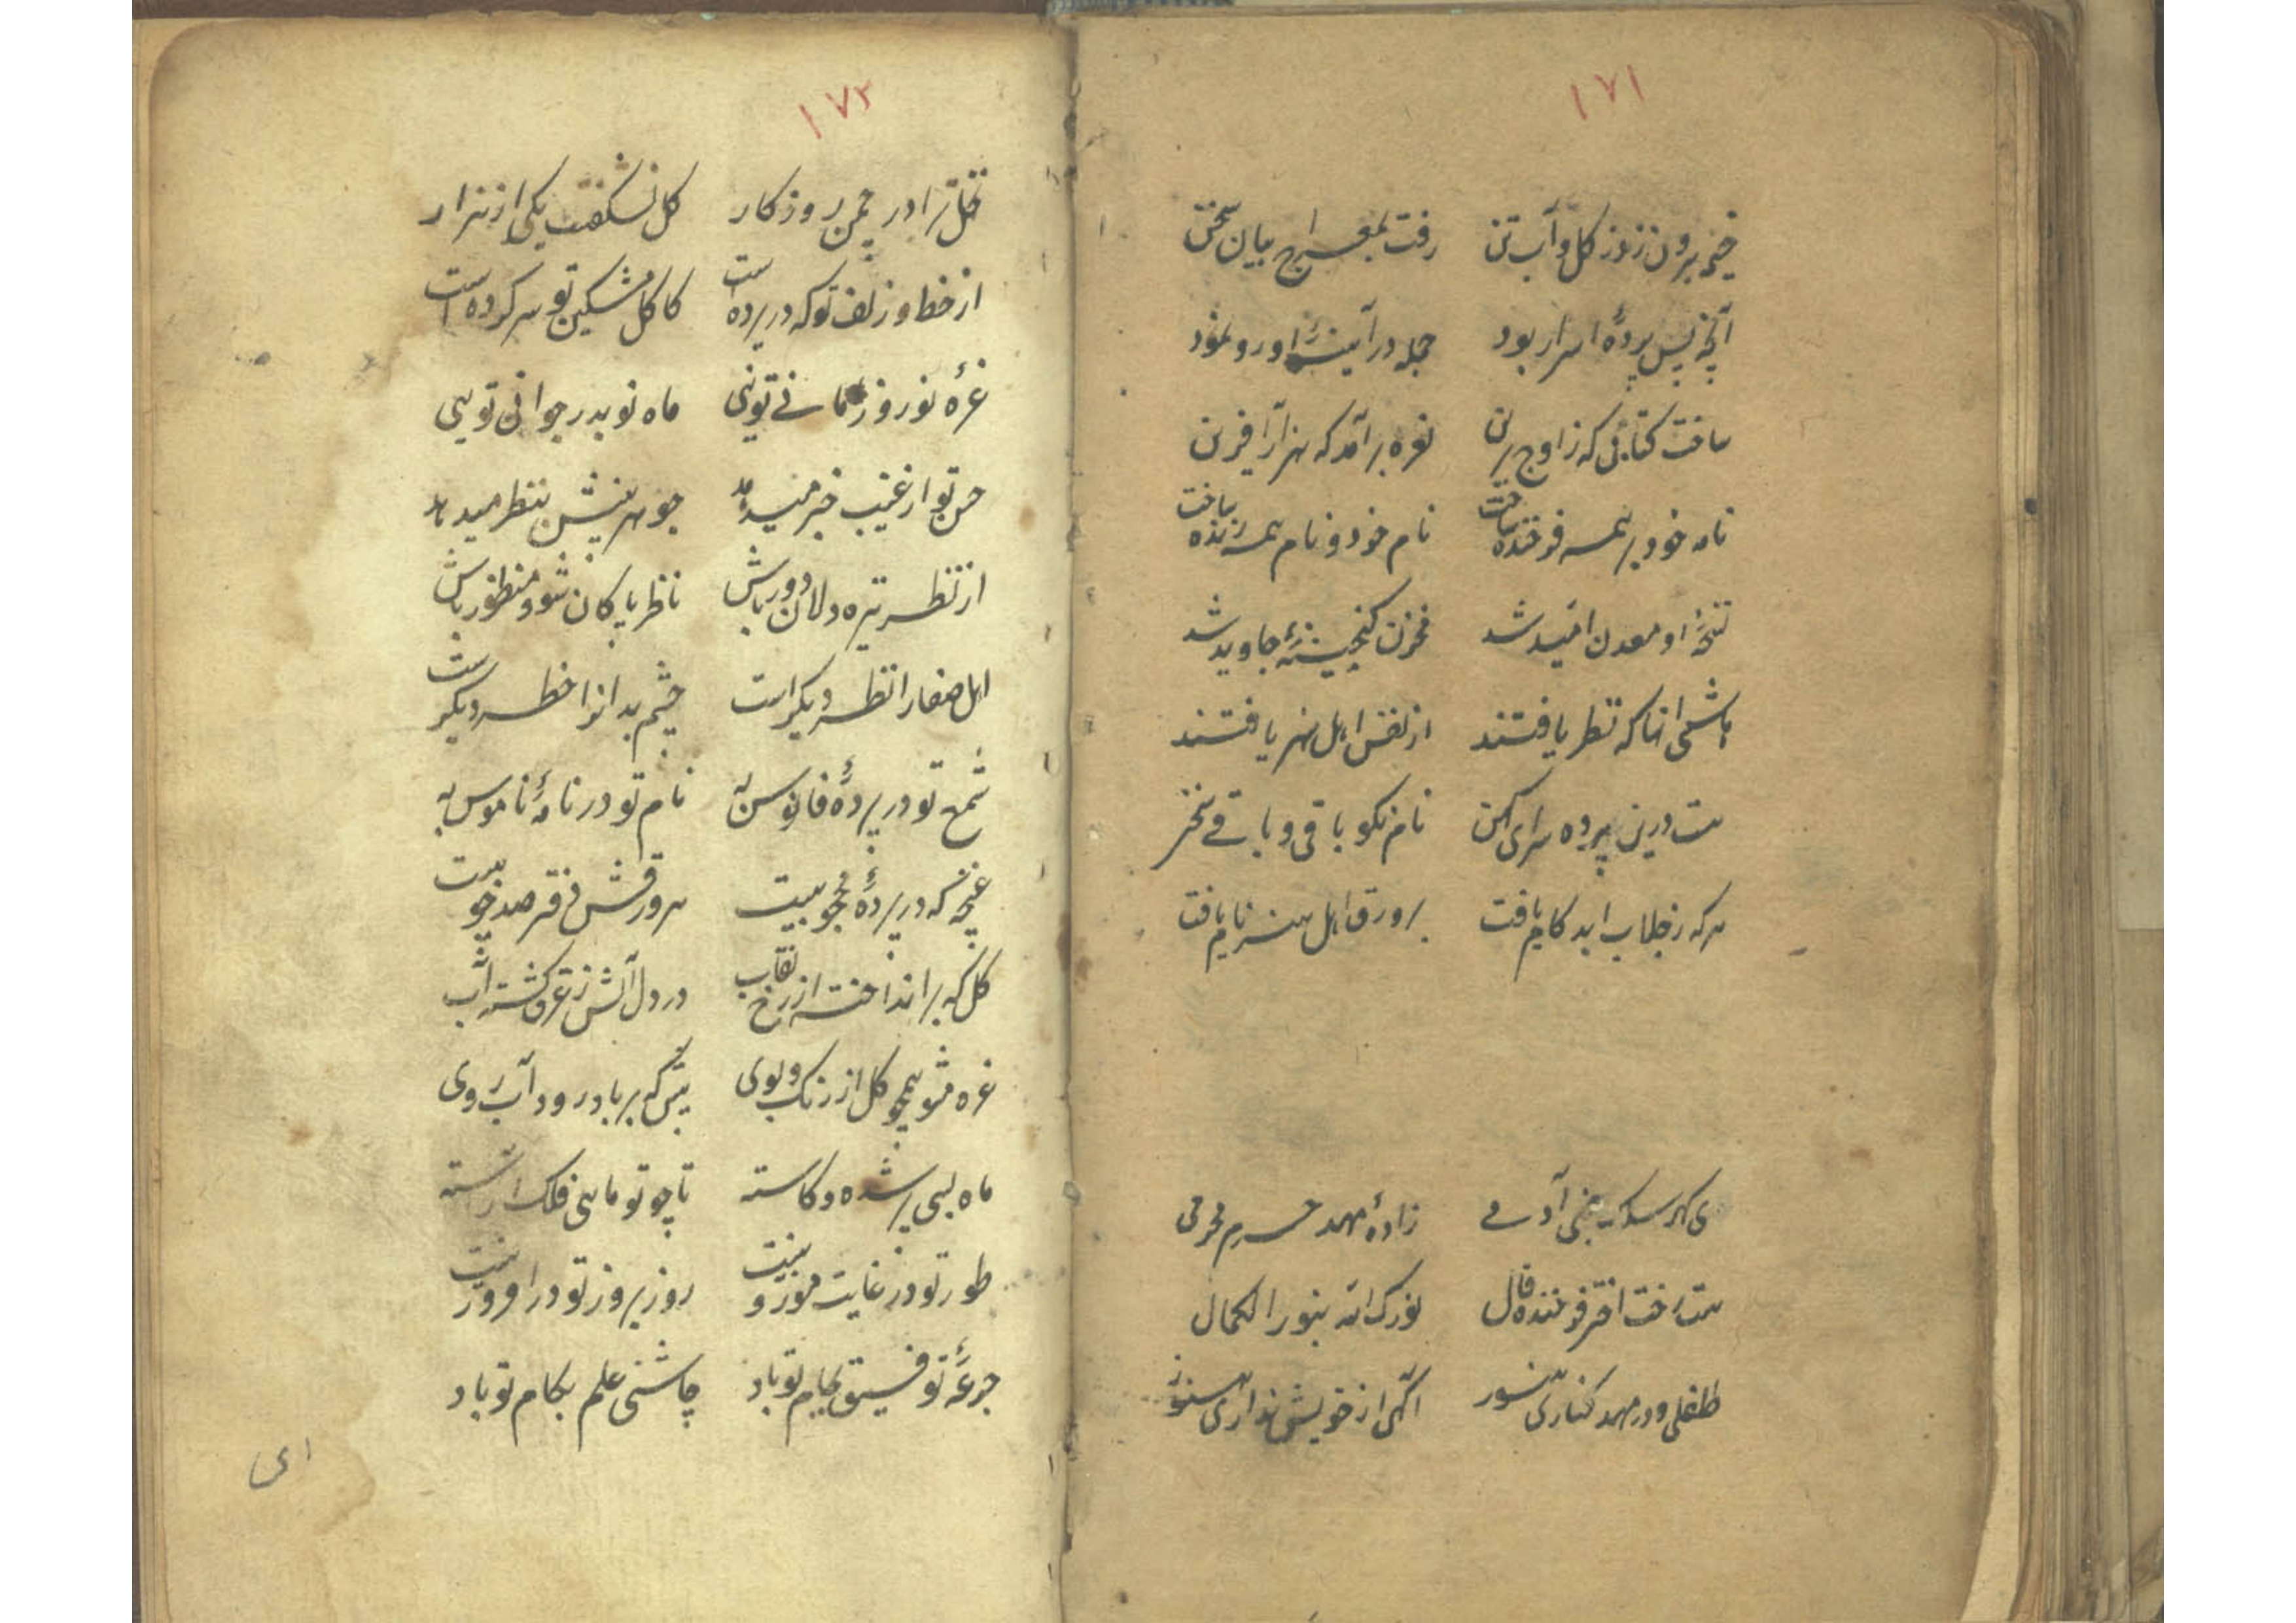 ۱۷۱
خیمه برون زد ز گل و آب تن رفت بمعراج بیان سخن
آنچه پس پردهٔ اسرار بود جمله در آیینهٔ او رو نمود
ساخت کتابی که ز اوج برین نعره برآمد که هزار آفرین
نامه خود بر همه فرخنده ساخت نام خود و نام همه زنده ساخت
نسخهٔ او معدن امید شد مخزن گنجینهٔ جاوید شد
هاشمی انها که نظر یافتند از نفس اهل هنر یافتند
هست درین پرده سرای کهن نام نکو باقی و باقی سخن
هرکه ز جلاب ابد کام یافت بر ورق اهل هنر نام یافت
ی گهر سلک بنی آدمی زادهٔ مهد حرم محرمی
هست رخت اختر فرخنده فال نورک الله بنور الکمال
طفلی و در مهد کناری هنوز آگهی از خویش نداری هنوز
۱۷۲
نخل ترا در چمن روزکار کل نشکفت یکی از هزار
از خط و زلف تو که در پرده است کاکل مشکین تو سر کرده است
غرهٔ نوروز امانی تویی ماه نو بدر جوانی تویی
حسن تو از غیب خبر میدهد جوهر بینش بنظر میدهد
از نظر تیره دلان دور باش ناظر پاکان شو و منظور باش
اهل صفا را نظر دیکر است چشم بدانرا خطر دیکر است
شمع تو در پردهٔ فانوس به نام تو در نامهٔ ناموس به
غنچه که در پردهٔ محجوبیست هر ورقش دفتر صد خوبیست
کل که برانداخته از رخ نقاب در دل آتش ز عرق کشته آب
غره مشو همچو کل از رنک و بوی بیش که بر باد رود آب روی
ماه بسی پر شده و کاسته تا چو تو ماهی فلک آراسته
طور تو در غایت موزونیست روز بروز تو در افزونیست
جرعهٔ توفیق بجام تو باد چاشنی علم بکام تو باد
ای